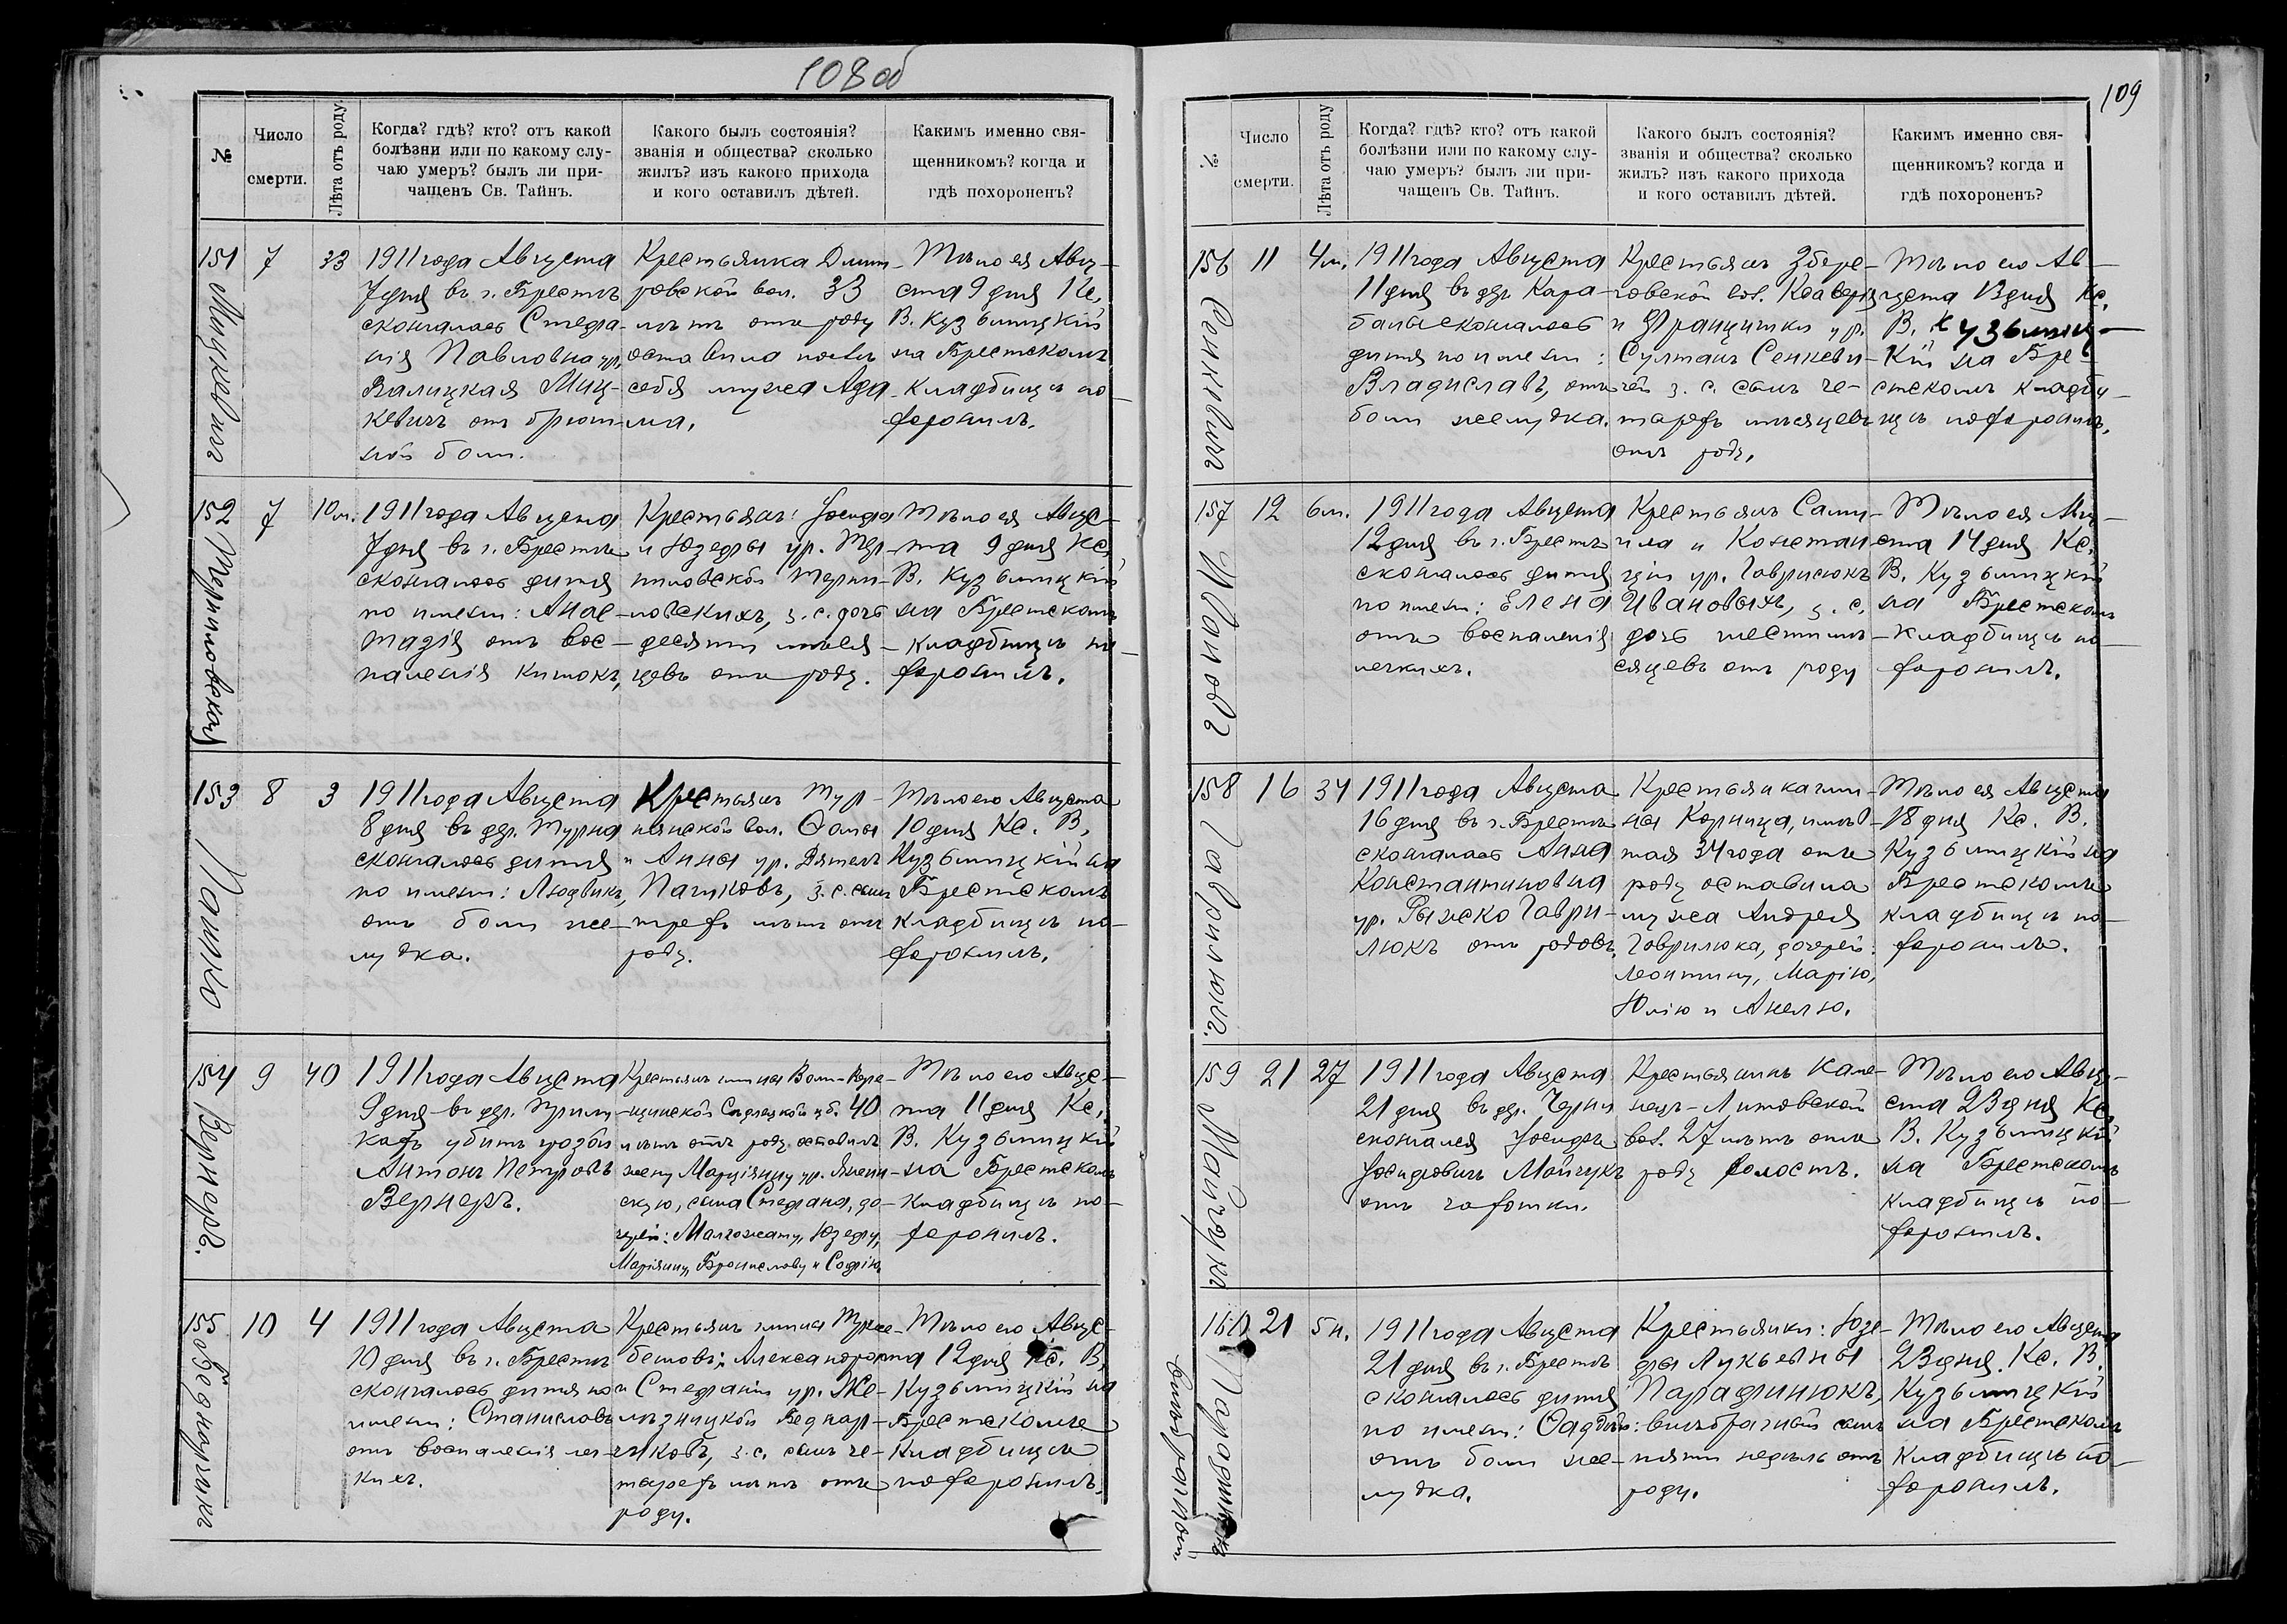 108 об
№
Число
смерти.
Лѣта отъ роду
Когда? гдѣ? кто? отъ какой
болѣзни или по какому слу-
чаю умеръ? былъ ли при-
чащенъ Св. Тайнъ.
Какого былъ состоянія?
званія и общества? сколько
жилъ? изъ какого прихода
и кого оставилъ дѣтей.
Какимъ именно свя-
щенникомъ? когда и
гдѣ похороненъ?
151
Мицкевичъ
7
33
1911 года Августа
7 дня въ г. Брестѣ
скончалась Стефа-
нія Павловна ур.
Валицкая Миц-
кевичъ отъ брюш-
ной боли.
Крестьянка Дмит-
ровской вол. 33
лѣтъ отъ роду
оставила послѣ
себя мужа Ада-
ма.
Тѣло ея Авгу-
ста 9 дня Кс.
В. Кузьмицкій
на Брестскомъ
кладбищѣ по-
хоронилъ.
152
7
10 м.
1911 года Августа
7 дня въ г. Брестѣ
скончалось дитя
по имени: Анас-
тазія отъ вос-
паленія кишокъ,
Крестьянъ: Іосифа
и Юзефы ур.
десяти мѣся-
цевъ отъ роду.
Тѣло ея Авгус-
та 9 дня Кс.
В. Кузьмицкій
на Брестскомъ
кладбищѣ по-
хоронилъ.
153
Пашко
8
3
1911 года Августа
8 дня въ дер. Турна
скончалось дитя
по имени: Людвикъ,
отъ боли же-
лудка.
Крестьянъ Тур-
нянской вол. Ѳомы
и Анны ур. Дятель
Пашковъ, з. с. сынъ
трехъ лѣтъ отъ
роду.
Тѣло его Августа
10 дня Кс. В.
Кузьмицкій на
Брестскомъ
кладбищѣ по-
хоронилъ.
154
Вернеръ.
9
40
1911 года Августа
9 дня въ дер.
убитъ
Антонъ Петровъ
Вернеръ.
Крестьянъ гмины
Сѣдлецкой губ. 40
лѣтъ отъ роду оставилъ
жену Марціянну ур.
сына Стефана, до-
черей: Малгожату, Юзефу,
Маріянну, Брониславу и Софію.
Тѣло его Авгус-
та 11 дня Кс.
В. Кузьмицкій
на Брестскомъ
кладбищѣ по-
хоронилъ.
155
Беднарчикъ
10
4
1911 года Августа
10 дня въ г. Брестѣ
скончалось дитя по
имени: Станиславъ
отъ воспаленія лег-
кихъ.
Крестьянъ гмины
Александра
и Стефаніи ур. Же-
лѣзницкой Беднар-
чиковъ, з. с. сынъ че-
тырехъ лѣтъ отъ
роду.
Тѣло его Авгус-
та 12 дня Кс. В.
Кузьмицкій на
Брестскомъ
кладбищѣ
похоронилъ.
109
№
Число
смерти.
Лѣта отъ роду
Когда? гдѣ? кто? отъ какой
болѣзни или по какому слу-
чаю умеръ? былъ ли при-
чащенъ Св. Тайнъ.
Какого былъ состоянія?
званія и общества? сколько
жилъ? изъ какого прихода
и кого оставилъ дѣтей.
Какимъ именно свя-
щенникомъ? когда и
гдѣ похороненъ?
156
Сенкевичъ
11
4 м.
1911 года Августа
11 дня въ дер. Кара-
баны скончалось
дитя по имени:
Владиславъ, отъ
боли желудка.
Крестьянъ Збиро-
говской вол. Ксаверія
и Францишки ур.
Султанъ Сенкеви-
чей з. с. сынъ че-
тырехъ мѣсяцевъ
отъ роду.
Тѣло его Ав-
густа 13 дня Кс.
В. Кузьмиц-
кій на Бре-
стскомъ кладби-
щѣ похоронилъ.
157
Ивановъ
12
6 м.
1911 года Августа
12 дня въ г. Брестѣ
скончалось дитя
по имени: Елена
отъ воспаленія
легкихъ.
Крестьянъ Саму-
ила и Констан-
ціи ур. Гаврисюкъ
Ивановыхъ, з. с.
дочь шестимѣ-
сяцевъ отъ роду
Тѣло ея Авгу-
ста 14 дня Кс.
В. Кузьмицкій
на Брестскомъ
кладбищѣ по-
хоронилъ.
158
Гаврилюкъ.
16
34
1911 года Августа
16 дня въ г. Брестѣ
скончалась Анна
Константиновна
ур. Рыжко Гаври-
люкъ отъ родовъ.
Крестьянка гми-
ны Корница, имѣв-
шая 34 года отъ
роду оставила
мужа Андрея
Гаврилюка, дочерей:
Леонтину, Марію,
Юлію и Анелю.
Тѣло ея Августа
18 дня Кс. В.
Кузьмицкій на
Брестскомъ
кладбищѣ по-
хоронилъ.
159
Мойчукъ
21
27
1911 года Августа
21 дня въ дер. Черни
скончался Іосифъ
Іосифовичъ Мойчукъ
отъ чахотки.
Крестьянинъ Каме-
нецъ-Литовской
вол. 27 лѣтъ отъ
роду холостъ.
Тѣло его Авгу-
ста 23 дня Кс.
В. Кузьмицкій
на Брестскомъ
кладбищѣ по-
хоронилъ.
160
Парафинюкъ
внѣбрачный
21
5 н.
1911 года Августа
21 дня въ г. Брестѣ
скончалось дитя
по имени: Ѳаддей
отъ боли же-
лудка.
Крестьянки: Юзе-
фы Лукьевны
Парафинюкъ,
внѣбрачный сынъ
пяти недѣль отъ
роду.
Тѣло его Августа
23 дня. Кс. В.
Кузьмицкій
на Брестскомъ
кладбищѣ по-
хоронилъ.